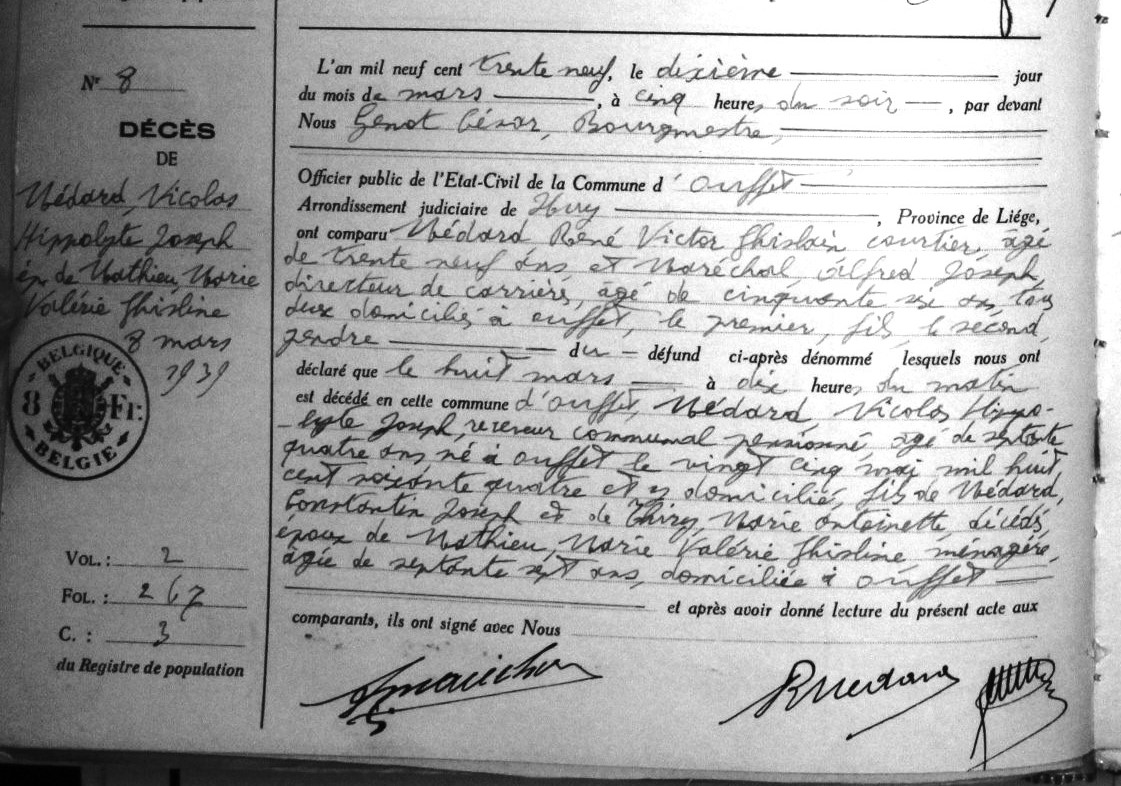 Nr 8
DÉCÈS
DE
Médard, Nicolas
Hippolyte Joseph
ép. de Mathieu, Marie
Valérie Ghisline
8 mars
1939
BELGIQUE
8 Fr.
BELGIE
VOL. : 2
FOL. : 267
C. : 3
du Registre de population
L'an mil neuf cent trente neuf, le dixième jour
du mois de mars, à cinq heures du soir, par devant
Nous Genot César, Bourgmestre,
Officier public de l'Etat-Civil de la Commune d'Ouffet
Arrondissement judiciaire de Huy, Province de Liége,
ont comparu Médard René Victor Ghislain courtier, âgé
de trente neuf ans et Maréchal, Alfred Joseph,
directeur de carrière, âgé de cinquante six ans, tous
deux domiciliés à Ouffet, le premier, fils, le second,
gendre du défund ci-après dénommé lesquels nous ont
déclaré que le huit mars à dix heures du matin
est décédé en cette commune d'Ouffet, Médard, Nicolas Hippo-
lyte Joseph, receveur communal pensionné, âgé de septante
quatre ans, né à Ouffet le vingt cinq mai mil huit
cent soixante quatre et y domicilié, fils de Médard,
Constantin Joseph et de Thiry, Marie Antoinette, décédés,
époux de Mathieu, Marie Valérie Ghisline, ménagère,
âgée de septante sept ans, domiciliée à Ouffet
et après avoir donné lecture du présent acte aux
comparants, ils ont signé avec Nous
RMedard